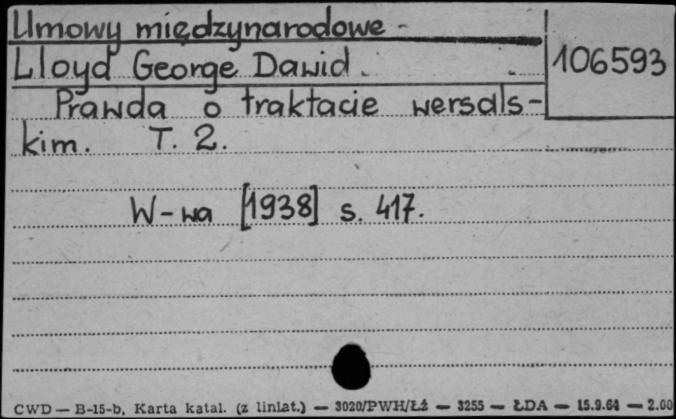 Umowy międzynarodowe -
106593
Lloyd George Dawid.
Prawda o traktacie wersals-
kim. T. 2.
W-wa [1938] s. 417.
CWD — B-15-b, Karta katal. (z liniat.) — 3020/PWH/Łź — 3255 — ŁDA — 15.9.64 — 2.00